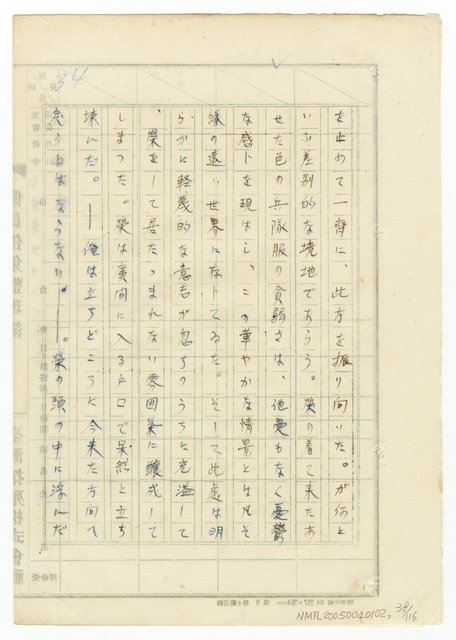 を止めて一齊に、此方を振り向いた。が何と
いふ差別的な境地であらう。榮の着て来たあ
せた色の兵隊服の貧弱さは、他愛もなく憂鬱
な感じを現はし、この華やかな情景とは凡そ
縁の遠い世界になってゐた。そして此處は明
らかに軽蔑的な意志が忽ちのうちに充溢して
、榮をして居たゝまれない雰囲氣に釀成して
しまつた。榮は廣間に入る戸口で呆然と立ち
竦んだ。――俺は立ちどころに今来た方向へ
戻らねばならない。――。榮の頭の中に浮んだ
34
NMTL20050040102, 38/116